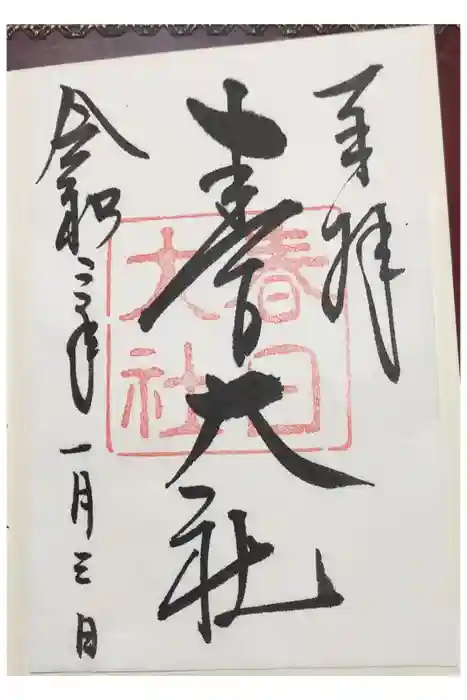 奉拝
春日大社
春日
大社
令和 年一月三日